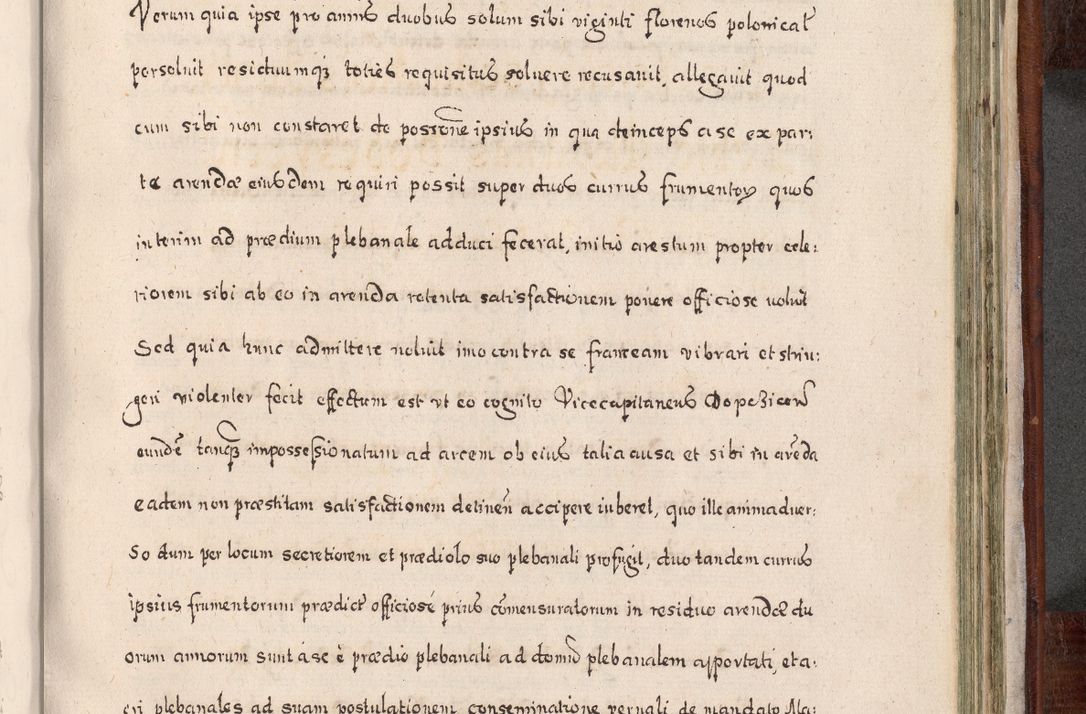 Verum quia ipse pro annis duobus solum sibi viginti florenos polonicał
persoluit residuumqȝ toties requisitus soluere recusauit, allegauit quod
cum sibi non constaret de possone ipsius in qua deinceps a se ex par:
te arendæ eiusdem requiri possit super duos currus frumentoꝝ quos
interim ad prædium plebanale adduci fecerat, initio arestum propter cele:
riorem sibi ab eo in arenda retenta satisfactionem ponere officiose uoluit
Sed quia hunc admittere noluit imo contra se franceam vibrari et striu:
geri violenter fecit effectum est vt eo cognito Vicecapitaneus
eundē tanqȝ impossessionatum ad arcem ob eius talia ausa et sibi in arēda
eadem non præstitam satisfactionem detinen̄ accipere iuberet, quo ille animaduer:
so dum per locum secretiorem et prædiolo suo plebanali profugit, duo tandem currus
ipsius frumentorum prædict officiose prius cōmensuratorum in residuo arendæ du
orum annorum sunt á se è prædio plebanali ad domū plebanalem apportati, et a:
gri plebanales ad suam postulationem conseminatione vernali de mandato Ma: